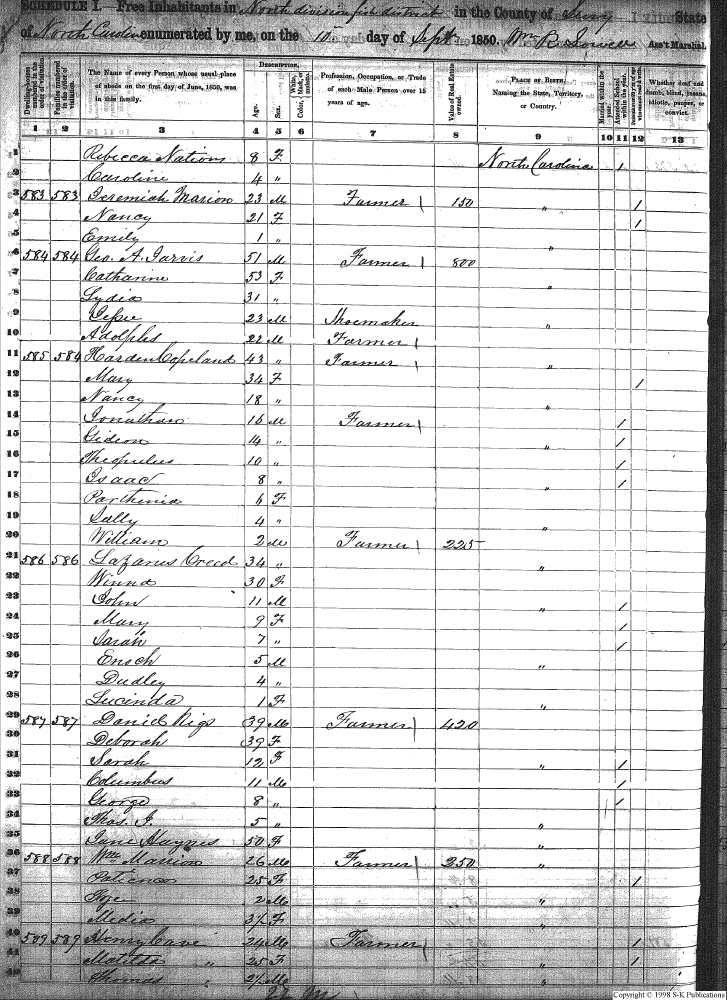 SCHEDULE I. Free Inhabitants in North division in the County of Surry State
of North Carolina enumerated by me, on the 10 day of Sept 1850. Wm R. Ass't Marshal.
Dwelling-houses numbered in the order of visitation.
Families numbered in the order of visitation.
The Name of every Person whose usual place of abode on the first day of June, 1850, was in this family.
DESCRIPTION.
Age.
Sex.
White, Color, black, or mulatto.
Profession, Occupation, or Trade of each Male Person over 15 years of age.
Value of Real Estate owned.
PLACE OF BIRTH, Naming the State, Territory, or Country.
Married within the year.
Attended School within the year.
Whether deaf and dumb, blind, insane, idiotic, pauper, or convict.
1 2 3 4 5 6 7 8 9 10 11 12 13
1 Rebecca Nations 8 F North Carolina /
2 Caroline 4 "
3 583 583 Jeremiah Marion 23 M Farmer 150 " /
4 Nancy 21 F /
5 Emily 1 " "
6 584 584 Geo. A. Jarvis 51 M Farmer 800
7 Catharine 53 F "
8 Lydia 31 "
9 23 M Shoemaker "
10 22 M Farmer
11 585 584 Harden Copeland 43 " Farmer "
12 Mary 34 F /
13 Nancy 18 " "
14 Jonathan 16 M Farmer /
15 Gideon 14 " " /
16 10 " /
17 Isaac 8 " " /
18 Parthenia 6 F
19 Sally 4 " "
20 William 2 M Farmer 225
21 586 586 Lazarus Creed 34 " "
22 30 F
23 John 11 M " /
24 Mary 9 F /
25 Sarah 7 " /
26 Enoch 5 M "
27 Dudley 4 "
28 Lucinda 1 F "
29 587 587 Daniel Rigs 39 M Farmer 420
30 Deborah 39 F
31 Sarah 12 F " /
32 Columbus 11 M /
33 George 8 " /
34 Thos. J. 5 " "
35 Jane Haynes 50 F "
36 588 588 Wm Marion 26 M Farmer 250 "
37 Patience 25 F /
38 2 M
39 F
40 589 589 Henry Cave 24 M Farmer /
41 Matilda " 25 F " /
42 Thomas " M "
Copyright © 1998 S-K Publications